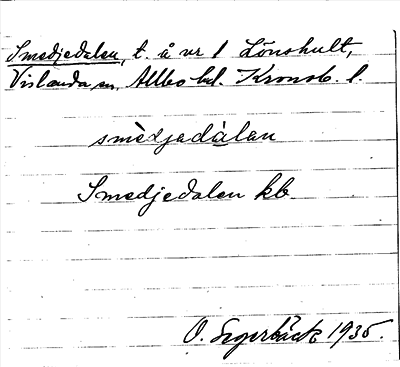 Smedjedalen, t. å nr 1 Lönshult,
Vislanda sn, Allbo hd. Kronob. l.
smèdjedàlen
Smedjedalen kb.
O. Segerbäck 1935.